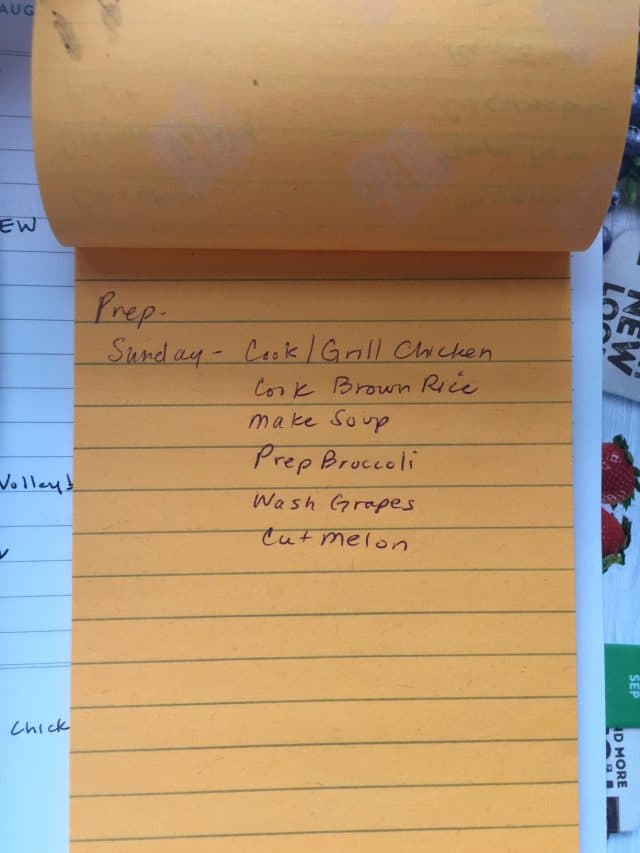 AUG
EW
Prep-
Sunday - Cook/Grill Chicken
Cook Brown Rice
Make Soup
Prep Broccoli
Wash Grapes
Cut Melon
Volley
Chick
NEW
SEP
ND MORE